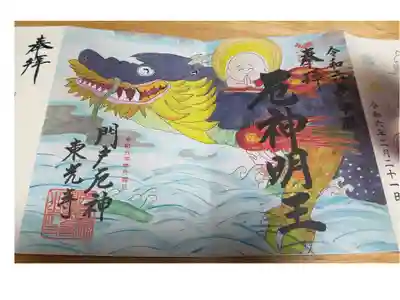 奉拝
令和六
厄神明王
門戸厄神
東光寺
奉拝
令和六年二月二十一日